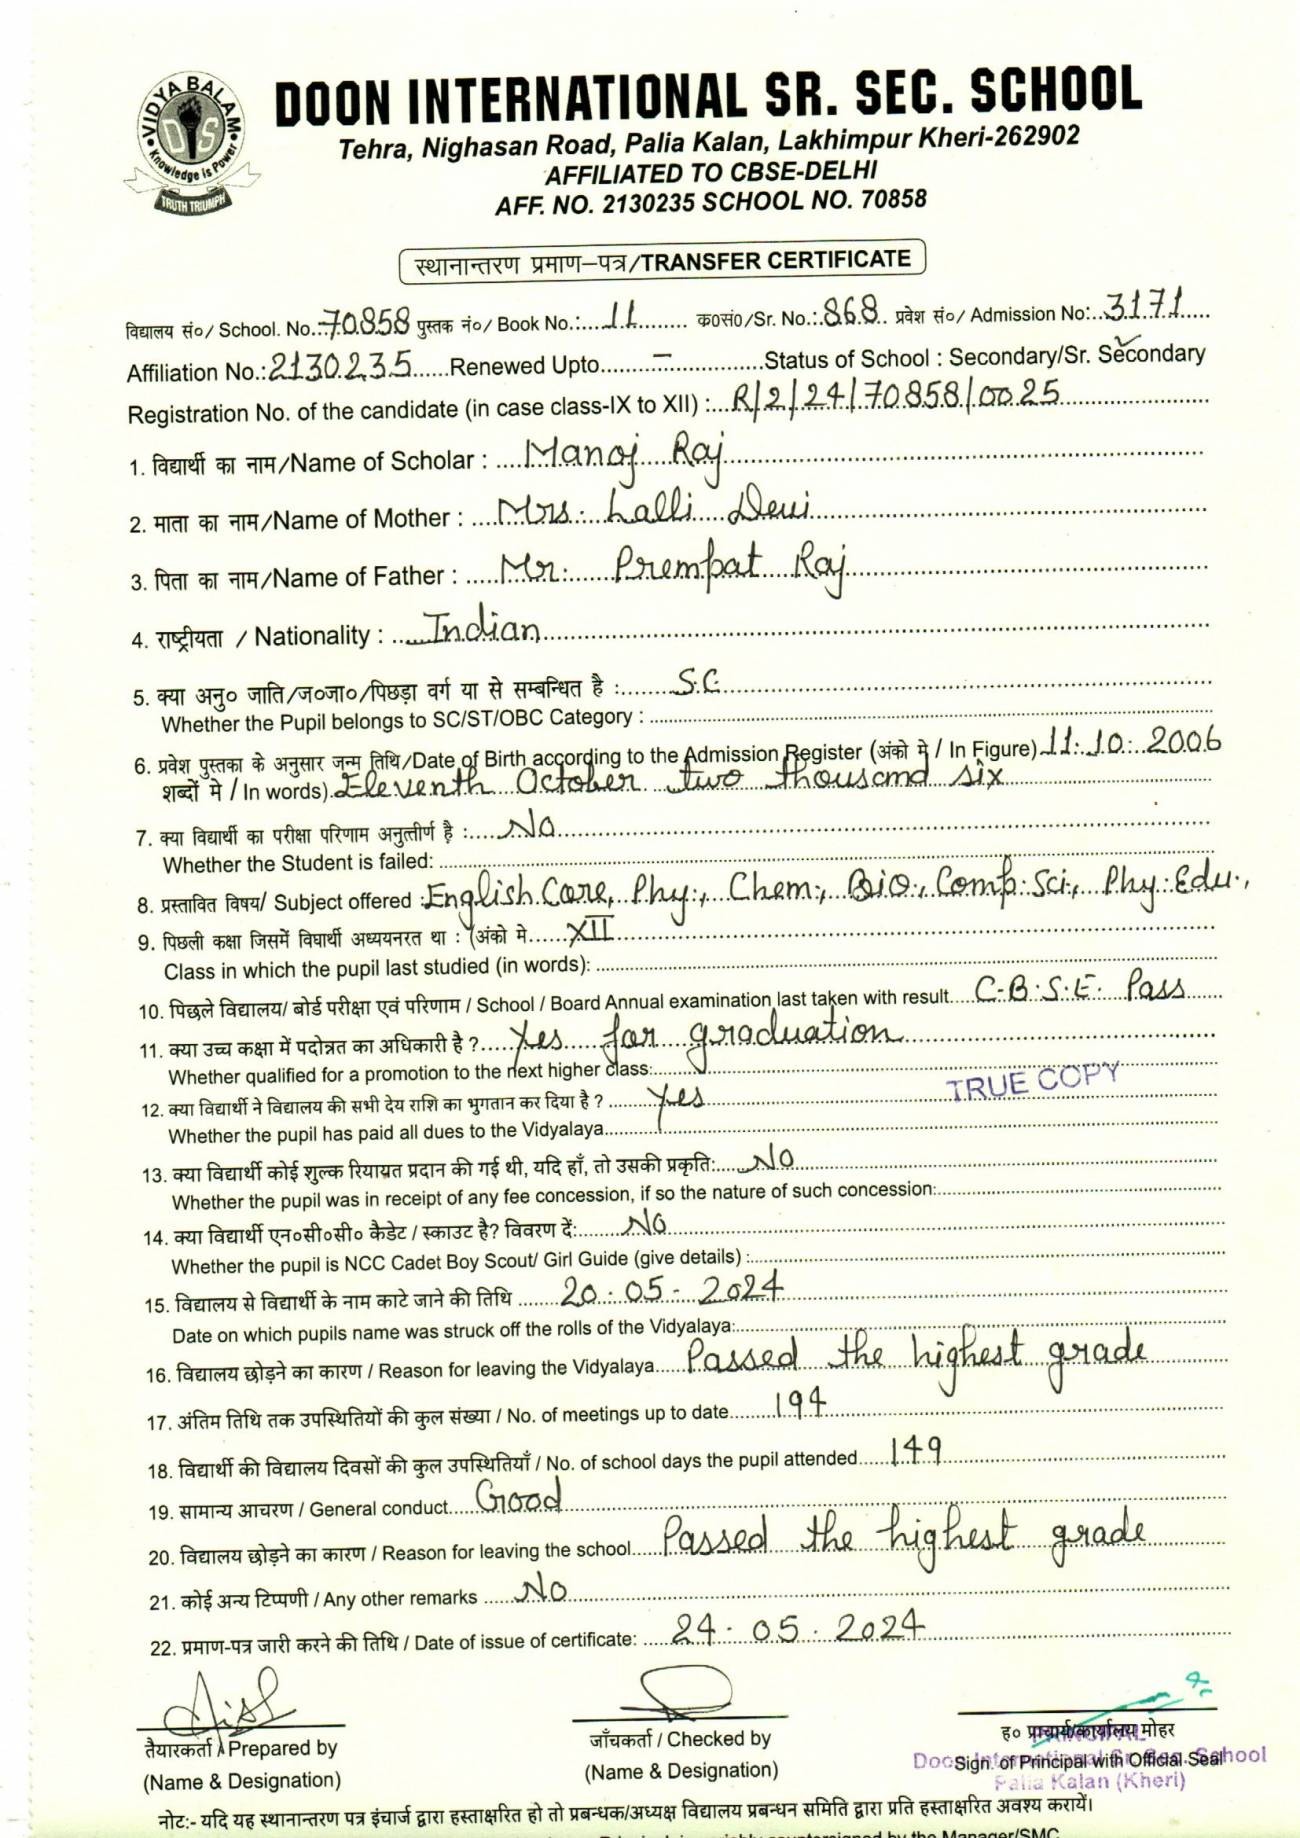 VIDYA BALAM
DIS
Knowledge is Power
TRUTH TRIUMPH
DOON INTERNATIONAL SR. SEC. SCHOOL
Tehra, Nighasan Road, Palia Kalan, Lakhimpur Kheri-262902
AFFILIATED TO CBSE-DELHI
AFF. NO. 2130235 SCHOOL NO. 70858
स्थानान्तरण प्रमाण–पत्र/TRANSFER CERTIFICATE
विद्यालय सं०/ School. No.:70858 पुस्तक नं०/ Book No.:....11........ क०सं०/Sr. No.:868.. प्रवेश सं०/ Admission No:..3171....
Affiliation No.:2130235......Renewed Upto........–..............Status of School : Secondary/Sr. Secondary
Registration No. of the candidate (in case class-IX to XII) :...R/2/24/70858/0025
1. विद्यार्थी का नाम/Name of Scholar : ....Manoj Raj
2. माता का नाम/Name of Mother : ....Mrs. Lalli Devi
3. पिता का नाम/Name of Father : .....Mr. Prempat Raj
4. राष्ट्रीयता / Nationality : .....Indian
5. क्या अनु० जाति/ज०जा०/पिछड़ा वर्ग या से सम्बन्धित है :.......S.C.
Whether the Pupil belongs to SC/ST/OBC Category :
6. प्रवेश पुस्तका के अनुसार जन्म तिथि/Date of Birth according to the Admission Register (अंको मे / In Figure) 11.10.2006
शब्दों मे / In words).Eleventh October two thousand six
7. क्या विद्यार्थी का परीक्षा परिणाम अनुत्तीर्ण है :.....No
Whether the Student is failed:
8. प्रस्तावित विषय/ Subject offered :English Core, Phy., Chem., Bio., Comp. Sci., Phy. Edu.,
9. पिछली कक्षा जिसमें विघार्थी अध्ययनरत था : (अंको मे......XII
Class in which the pupil last studied (in words):
10. पिछले विद्यालय/ बोर्ड परीक्षा एवं परिणाम / School / Board Annual examination last taken with result....C.B.S.E. Pass
11. क्या उच्च कक्षा में पदोन्नत का अधिकारी है ?.....Yes for graduation
Whether qualified for a promotion to the next higher class:
TRUE COPY
12. क्या विद्यार्थी ने विद्यालय की सभी देय राशि का भुगतान कर दिया है ? .......Yes
Whether the pupil has paid all dues to the Vidyalaya
13. क्या विद्यार्थी कोई शुल्क रियाय्रत प्रदान की गई थी, यदि हाँ, तो उसकी प्रकृति:.....No
Whether the pupil was in receipt of any fee concession, if so the nature of such concession:
14. क्या विद्यार्थी एन०सी०सी० कैडेट / स्काउट है? विवरण दें:.......No
Whether the pupil is NCC Cadet Boy Scout/ Girl Guide (give details) :
15. विद्यालय से विद्यार्थी के नाम काटे जाने की तिथि .......20.05-2024
Date on which pupils name was struck off the rolls of the Vidyalaya:
16. विद्यालय छोड़ने का कारण / Reason for leaving the Vidyalaya.....Passed the highest grade
17. अंतिम तिथि तक उपस्थितियों की कुल संख्या / No. of meetings up to date........194
18. विद्यार्थी की विद्यालय दिवसों की कुल उपस्थितियाँ / No. of school days the pupil attended.....149
19. सामान्य आचरण / General conduct....Good
20. विद्यालय छोड़ने का कारण / Reason for leaving the school.....Passed the highest grade
21. कोई अन्य टिप्पणी / Any other remarks .....No
22. प्रमाण-पत्र जारी करने की तिथि / Date of issue of certificate: .....24.05.2024
तैयारकर्ता / Prepared by
(Name & Designation)
जाँचकर्ता / Checked by
(Name & Designation)
ह० प्राचार्य/कार्यालय मोहर
PRINCIPAL
Sign. of Principal with Official Seal
Doon International Sr. Sec. School
Palia Kalan (Kheri)
नोट:- यदि यह स्थानान्तरण पत्र इंचार्ज द्वारा हस्ताक्षरित हो तो प्रबन्धक/अध्यक्ष विद्यालय प्रबन्धन समिति द्वारा प्रति हस्ताक्षरित अवश्य करायें।
countersigned by the Manager/SMC